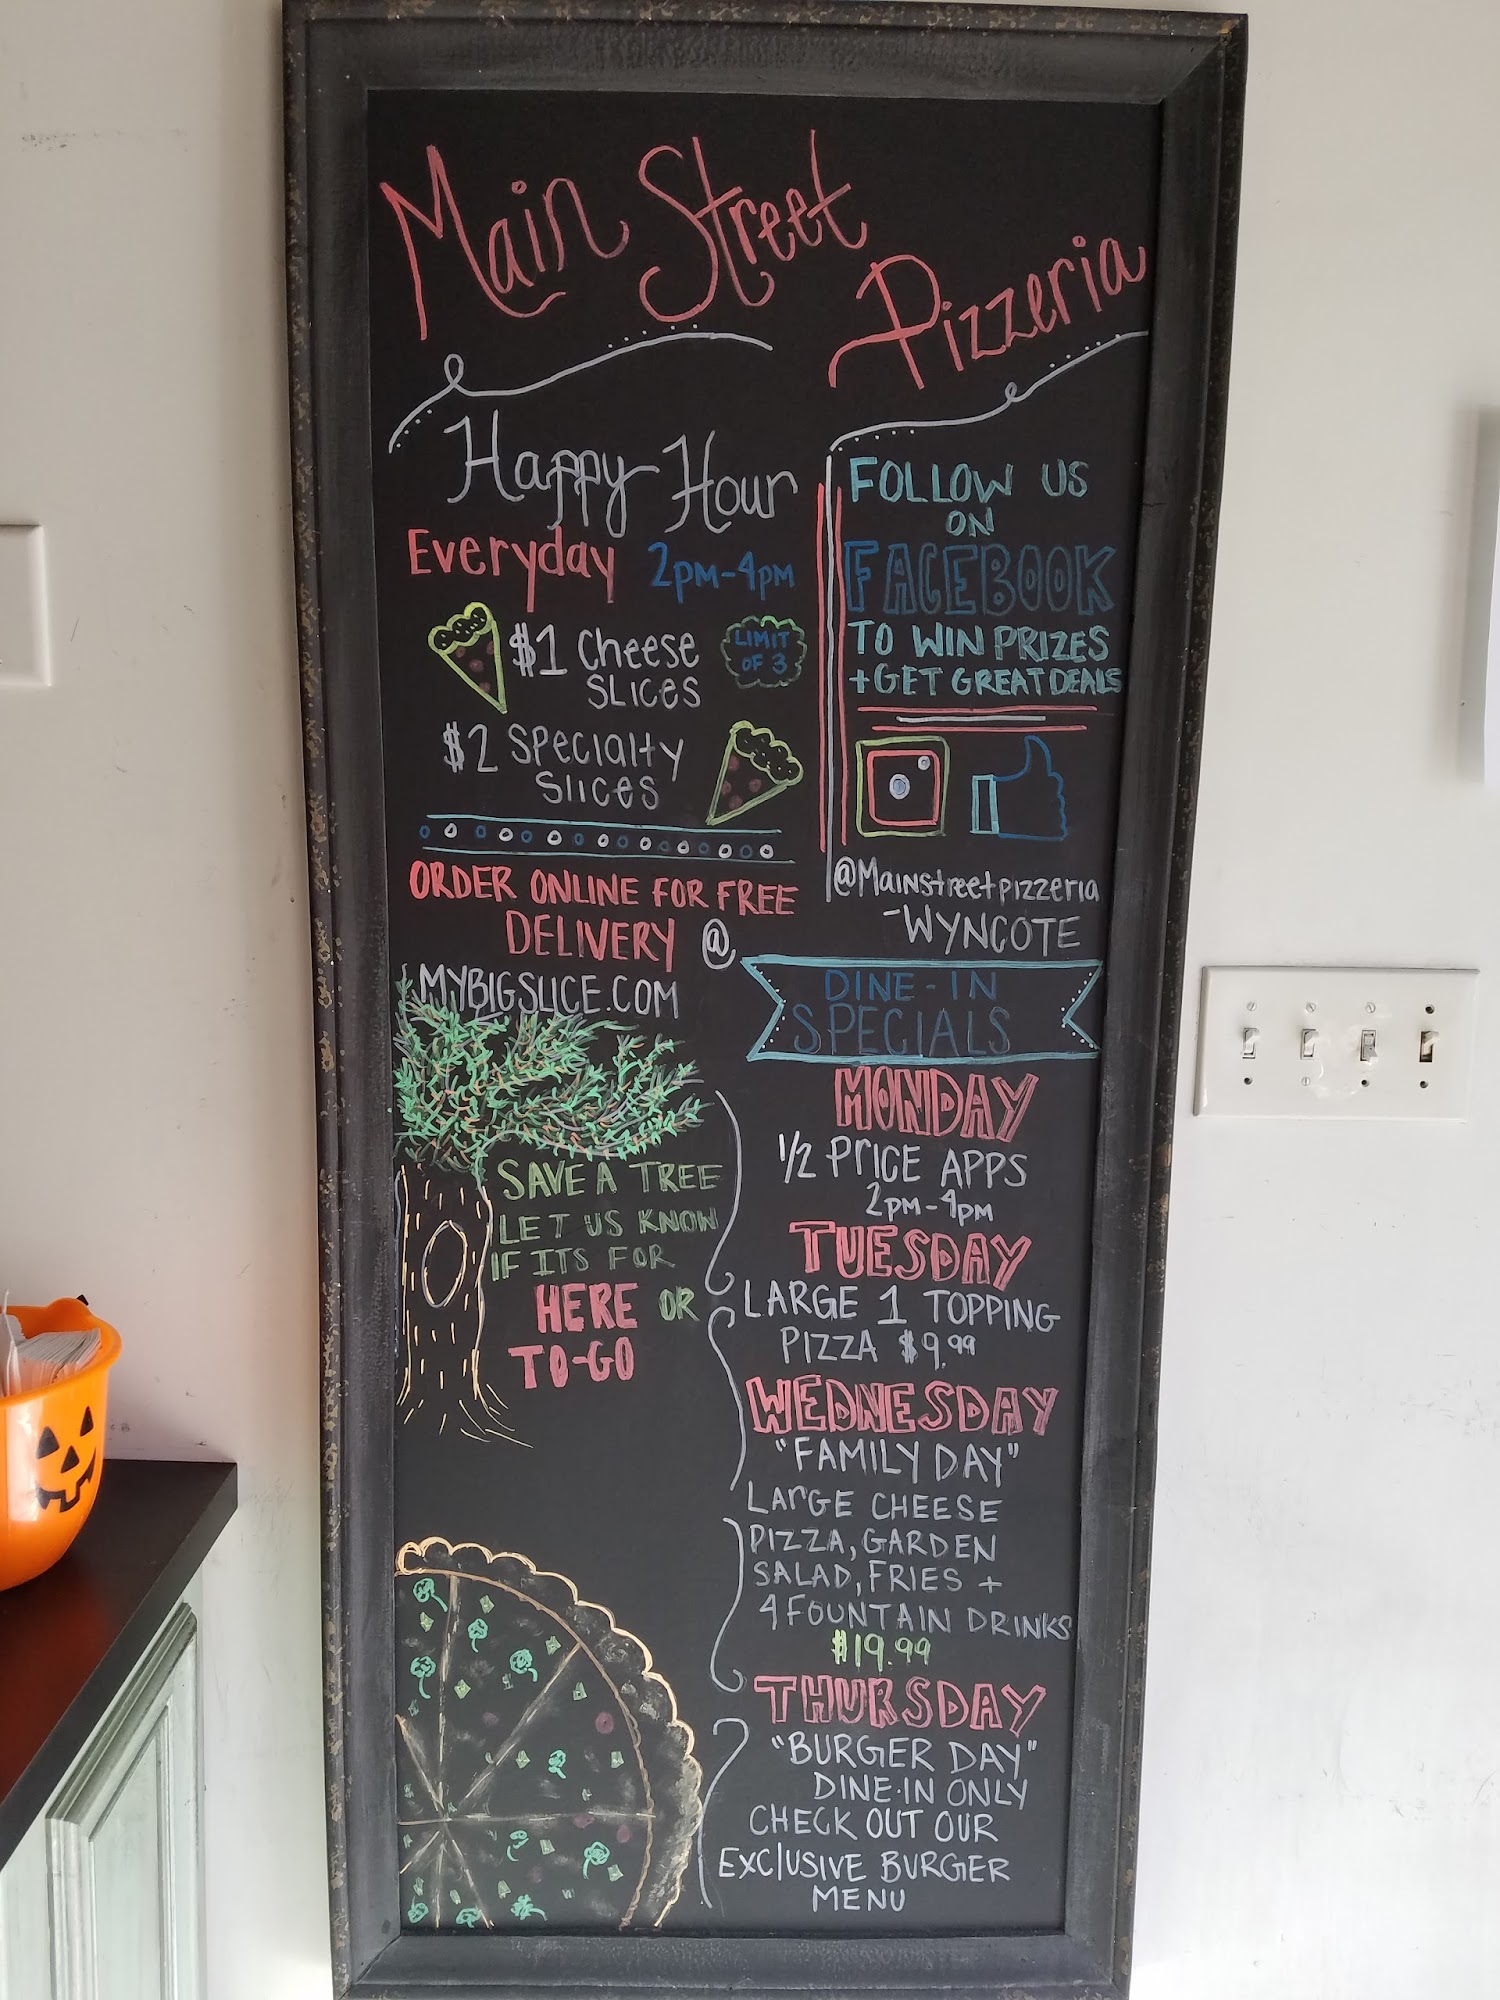 Main Street
Pizzeria
Happy Hour
Everyday 2PM-4PM
$1 Cheese
SLICES
LIMIT
OF 3
$2 Specialty
Slices
ORDER ONLINE FOR FREE
DELIVERY @
MYBIGSLICE.COM
SAVE A TREE
LET US KNOW
IF ITS FOR
HERE OR
TO-GO
FOLLOW US
ON
FACEBOOK
TO WIN PRIZES
+ GET GREAT DEALS
@Mainstreetpizzeria
-WYNCOTE
DINE-IN
SPECIALS
MONDAY
1/2 PRICE APPS
2PM-4PM
TUESDAY
LARGE 1 TOPPING
PIZZA $9.99
WEDNESDAY
"FAMILY DAY"
LARGE CHEESE
PIZZA, GARDEN
SALAD, FRIES +
4 FOUNTAIN DRINKS
$19.99
THURSDAY
"BURGER DAY"
DINE-IN ONLY
CHECK OUT OUR
EXCLUSIVE BURGER
MENU